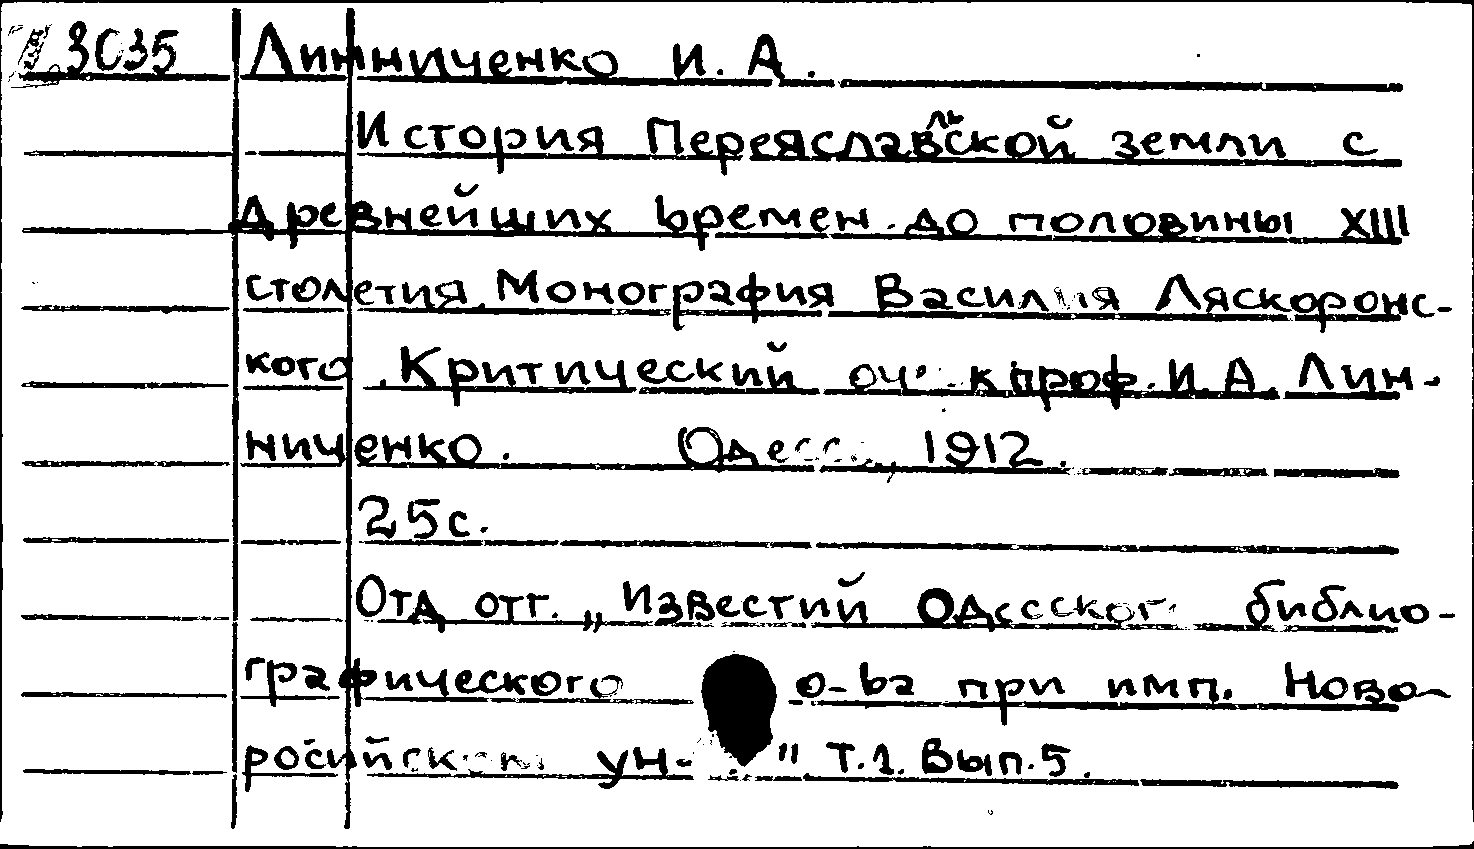 3035 Линниченко И. А.
История Переяславльской земли с
древнейших времен до половины XIII
столетия. Монография Василия Ляскоронс-
кого. Критический очерк проф. И. А. Лин-
ниченко. Одесса, 1912.
25 с.
Отд. отт. „Известий Одесского библио-
графического о-ва при имп. Ново-
росийском ун-" Т.1. Вып.5.